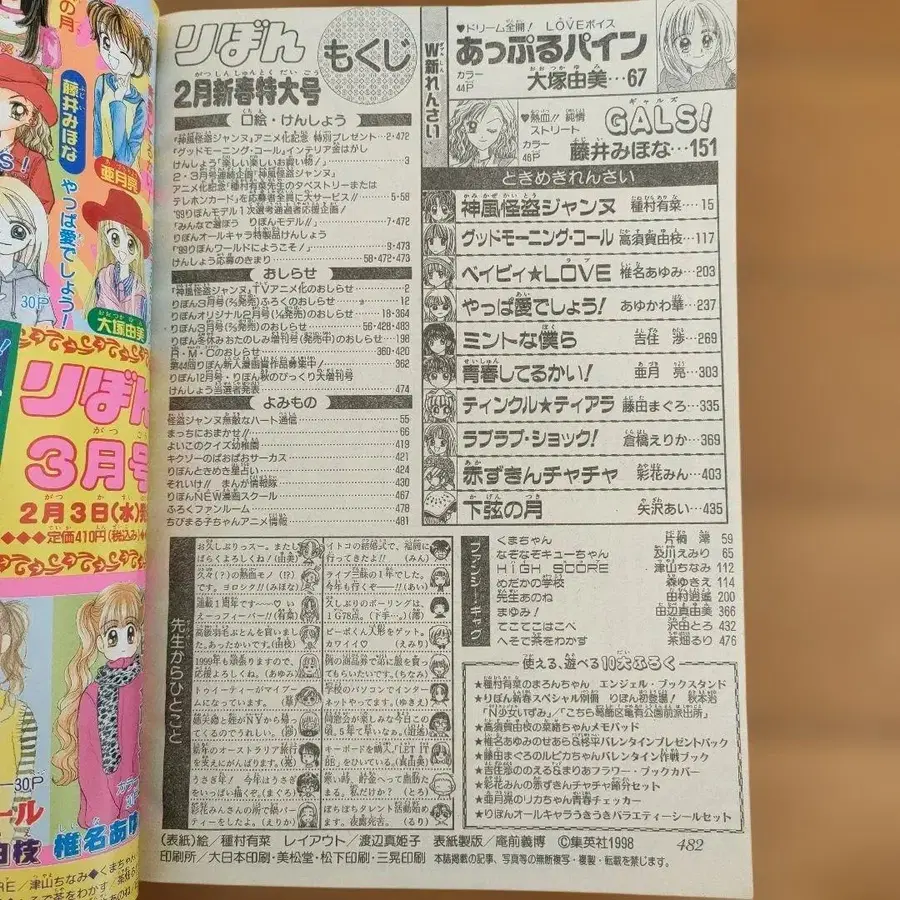 りぼん
もくじ
2月新春特大号
口絵・けんしょう
「神風怪盗ジャンヌ」アニメ化記念 特別プレゼント…2・472
「グッドモーニング・コール」インテリア金はがし
けんしょう「楽しい楽しいお買い物!」…3
2・3月号連続企画「神風怪盗ジャンヌ」
アニメ化記念「種村有菜先生のタペストリーまたは
テレホンカード」を応募者全員に大サービス!!…5・58
'99りぼんモデル1次選考通過者応援企画!
「みんなで選ぼう りぼんモデル!!」…7・472
りぼんオールキャラ特製品けんしょう
「'99りぼんワールドにようこそ!」…9・473
けんしょう応募のきまり…58・472・473
おしらせ
「神風怪盗ジャンヌ」TVアニメ化のおしらせ…2
りぼん3月号(2/3発売)ふろくのおしらせ…12
りぼんオリジナル2月号(1/発売)のおしらせ…18・364
りぼん3月号(2/3発売)のおしらせ…56・428・483
りぼん冬休みおたのしみ増刊号(発売中)のおしらせ…198
R・M・Cのおしらせ…360・420
第44回りぼん新人漫画賞作品募集中!…362
りぼん12月号・りぼん秋のびっくり大増刊号
けんしょう当選者発表…474
よみもの
怪盗ジャンヌ無敵なハート通信…55
まっちにおまかせ!!…66
よいこのクイズ幼稚園…419
キクゾーのぱおぱおサーカス…421
りぼんときめき星占い…424
それいけ!! まんが情報隊…430
りぼんNEW漫画スクール…467
ふろくファンルーム…478
ちびまる子ちゃんアニメ情報…481
W新れんさい
♥ドリーム全開! LOVEボイス
あっぷるパイン
カラー
44P
大塚由美…67
♥熱血!! 純情
ストリート
GALS!
カラー
46P
藤井みほな…151
ときめきれんさい
神風怪盗ジャンヌ 種村有菜…15
グッドモーニング・コール 高須賀由枝…117
ベイビィ★LOVE 椎名あゆみ…203
やっぱ愛でしょう! あゆかわ華…237
ミントな僕ら 吉住 渉…269
青春してるかい! 亜月 亮…303
ティンクル★ティアラ 藤田まぐろ…335
ラブラブ・ショック! 倉橋えりか…369
赤ずきんチャチャ 彩花みん…403
下弦の月 矢沢あい…435
ファンシー・ギャグ
くまちゃん 片桐 澪 59
なぞなぞキューちゃん 及川えみり 65
HIGH SCORE 津山ちなみ 112
めだかの学校 森ゆきえ 114
先生あのね 田村逍遙 200
まゆみ! 田辺真由美 366
てこてこはこべ 沢田とろ 432
へそで茶をわかす 茶畑るり 476
先生からひとこと
お久しぶりっスー。またしばらくよろしくね!(由美)
久々(?)の熱血モノ(!?)です。ヨロシク!!(みほな)
連載1周年です〜♡ いえーっフィーバー!(有菜)
高級羽毛ぶとんを買いました。あったかいです。(由枝)
1999年も頑張りますので、よろしくね。(あゆみ)
うさぎ年! 今年はうさぎをいっぱい描くぞ。(まぐろ)
イトコの結婚式で、福岡に行ってきたよ!!(みん)
ライブ三昧の1年でした。今年も行くぞー!!(あい)
久しぶりのボーリングは、1G78点。(下手…。)(澪)
ピーポくん人形をゲット。カワイイ♡(えみり)
使える、遊べる10大ふろく
★種村有菜のまろんちゃん エンジェル・ブックスタンド
★りぼん新春スペシャル別冊 りぼん初登場! 秋本治
「N少女いずみ」、「こちら葛飾区亀有公園前派出所」
★高須賀由枝の菜緒ちゃんメモパッド
★椎名あゆみのせあら&柊平バレンタインプレゼントバッグ
★藤田まぐろのルビカちゃんバレンタイン作戦ブック
★吉住渉ののえる&まりあフラワー・ブックカバー
★彩花みんの赤ずきんチャチャ節分セット
★亜月亮のリカちゃん青春チェッカー
★りぼんオールキャラうきうきバラエティーシールセット
(表紙)絵/種村有菜 レイアウト/渡辺真姫子 表紙製版/庵前義博 ©集英社1998
印刷所/大日本印刷・美松堂・松下印刷・三晃印刷
本誌掲載の記事、写真等の無断複写・複製・転載を禁じます。
482
の月
藤井みほな
やっぱ愛でしょう!
亜月亮
30P
大塚由美
りぼん
3月号
2月3日(水)
◆◆◆◆定価410円(税込み)◆
30P
椎名あゆ
由枝
津山ちなみ◆くまちゃん